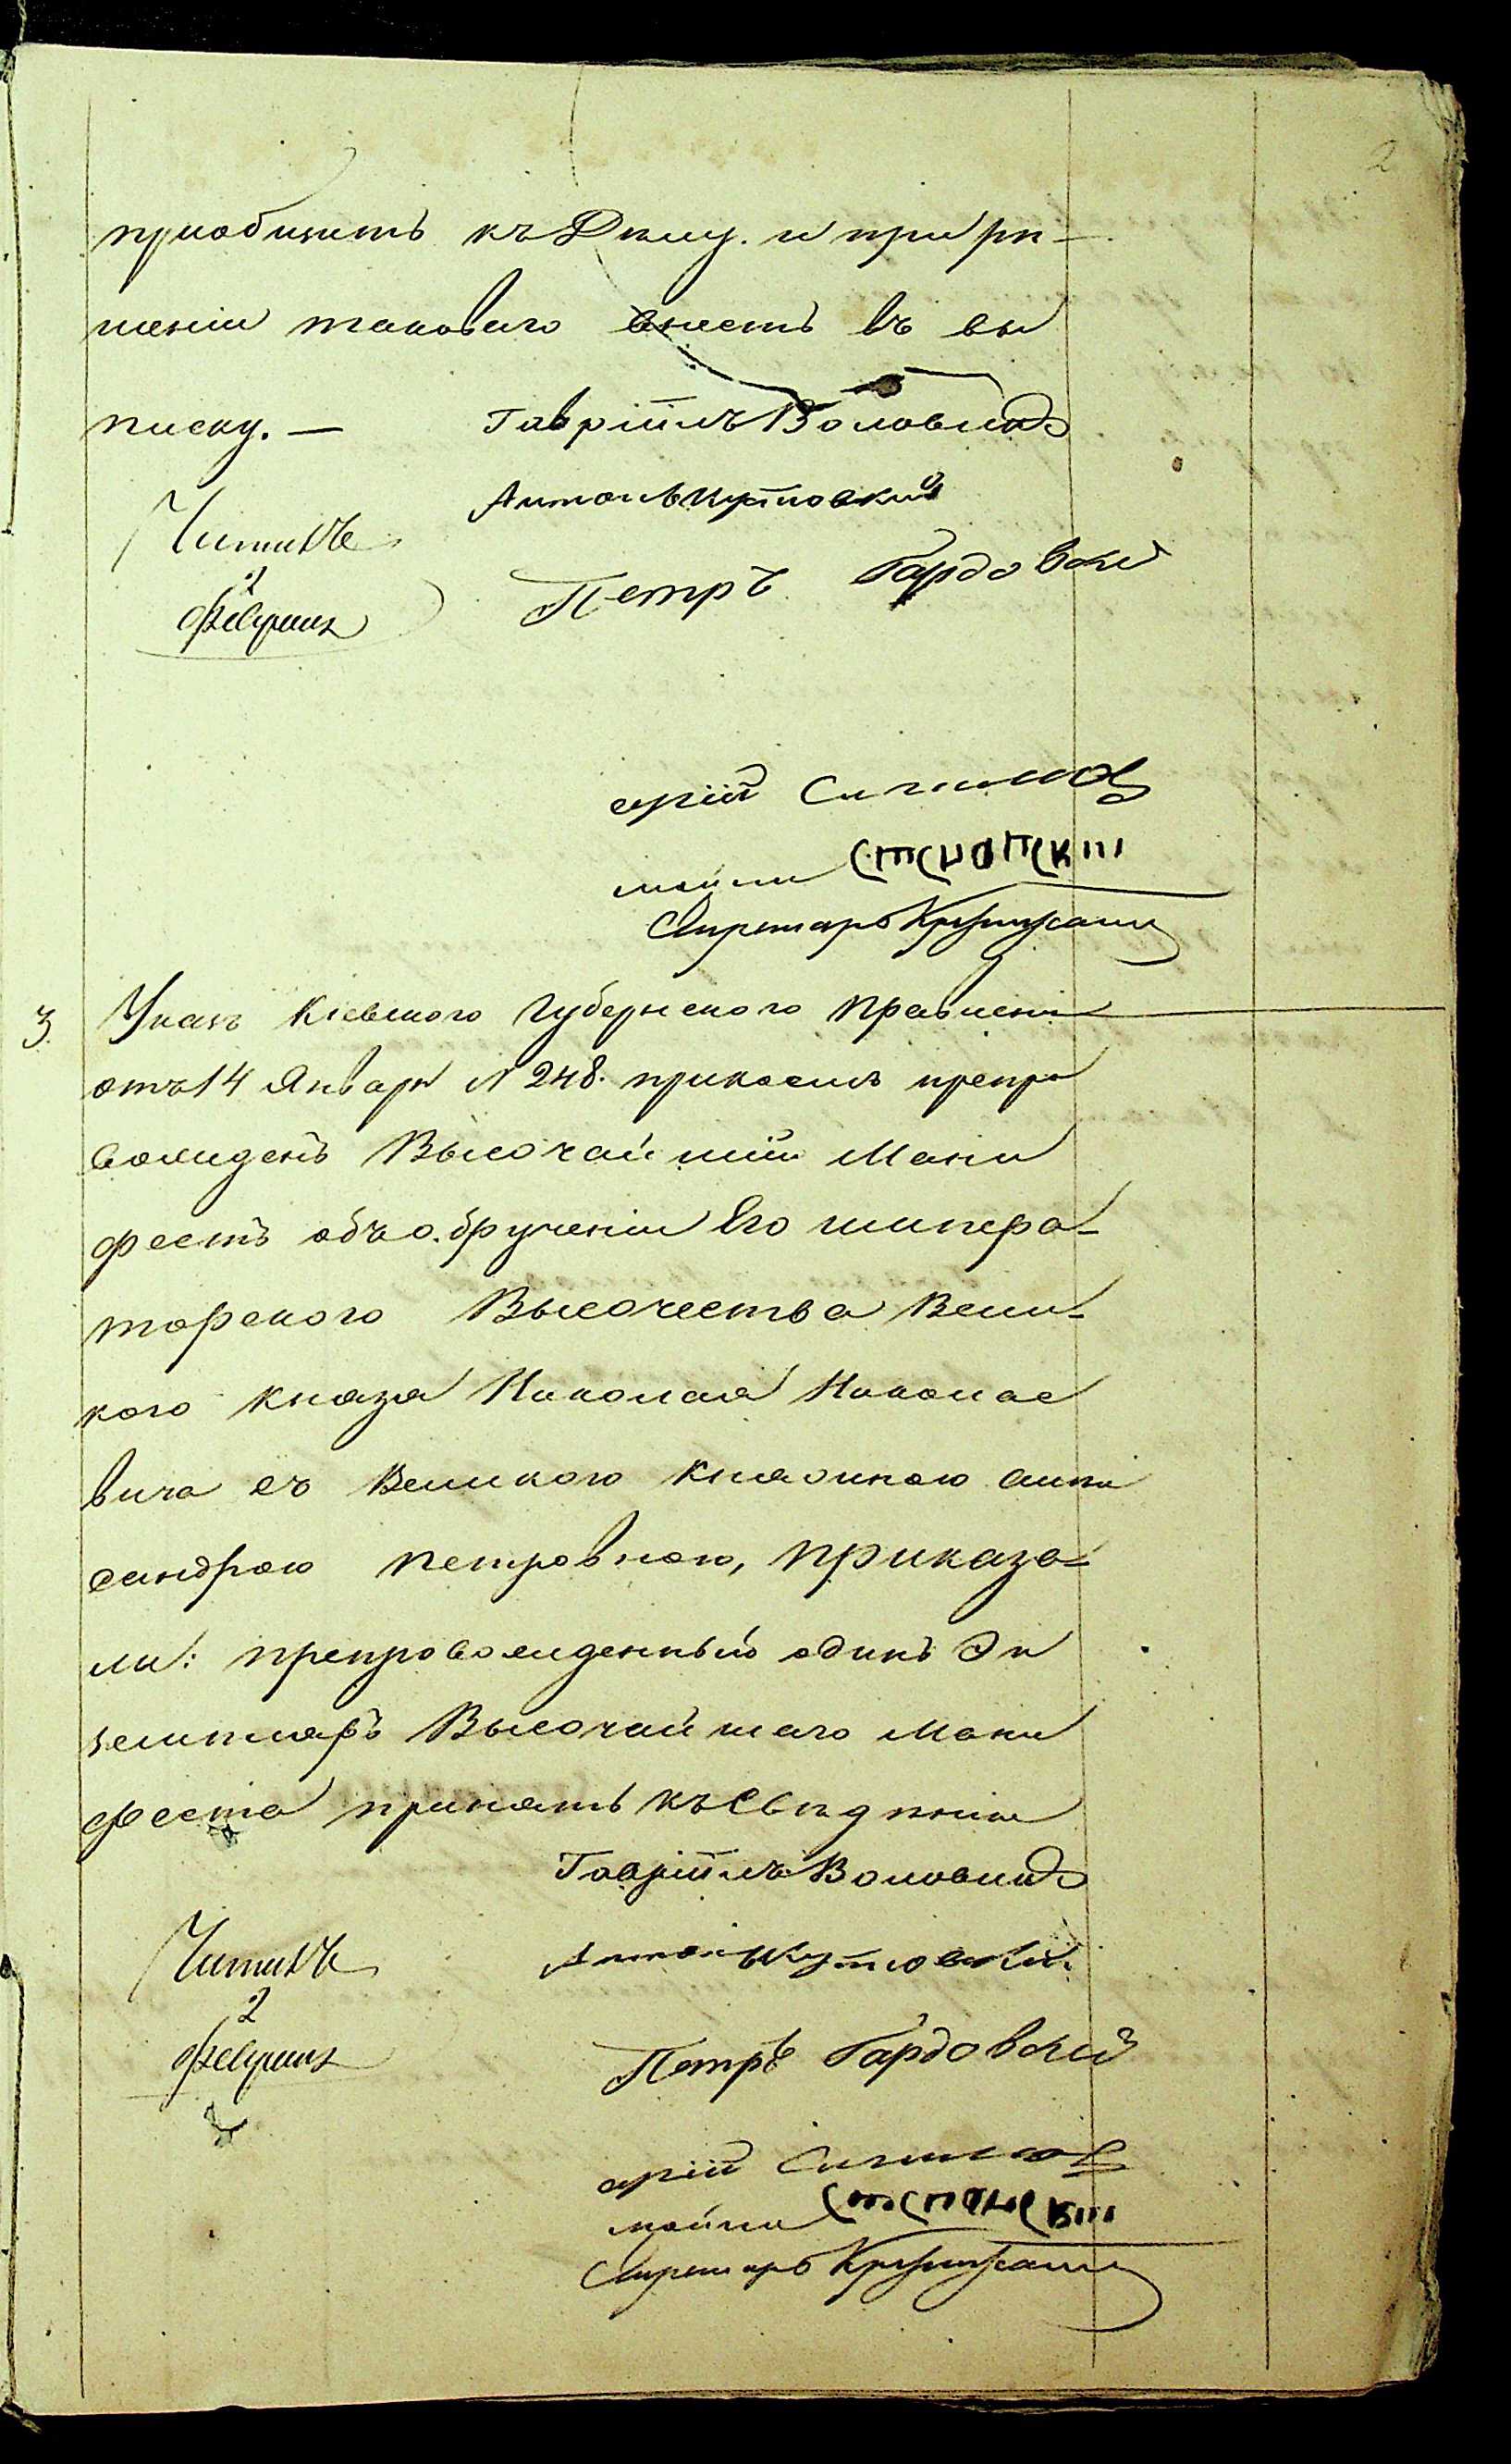 2
приобщить къ Дѣлу. и при рѣ-
шеніи таковаго внесть въ вы
писку. —
Гавріилъ Воловикъ
Антонъ Кутковскій
Читалъ
2
Февраля
Петръ Гардовскій
Секретарь
3. Указъ Кіевского Губернского Правленія
отъ 14 Января № 248. при коемъ препро
вожденъ Высочайшій Мани
фестъ объ обрученіи Его импера-
торского Высочества Вели-
кого Князя Николая Николае
вича съ Великою Княжною Алек
сандрою Петровною, приказа-
ли: препровожденный одинъ Эк
земпляръ Высочайшаго Мани
феста принять къ свѣдѣнію
Гавріилъ Воловикъ
Читалъ
Антонъ Кутковскій
2
Февраля
Петръ Гардовскій
Секретарь